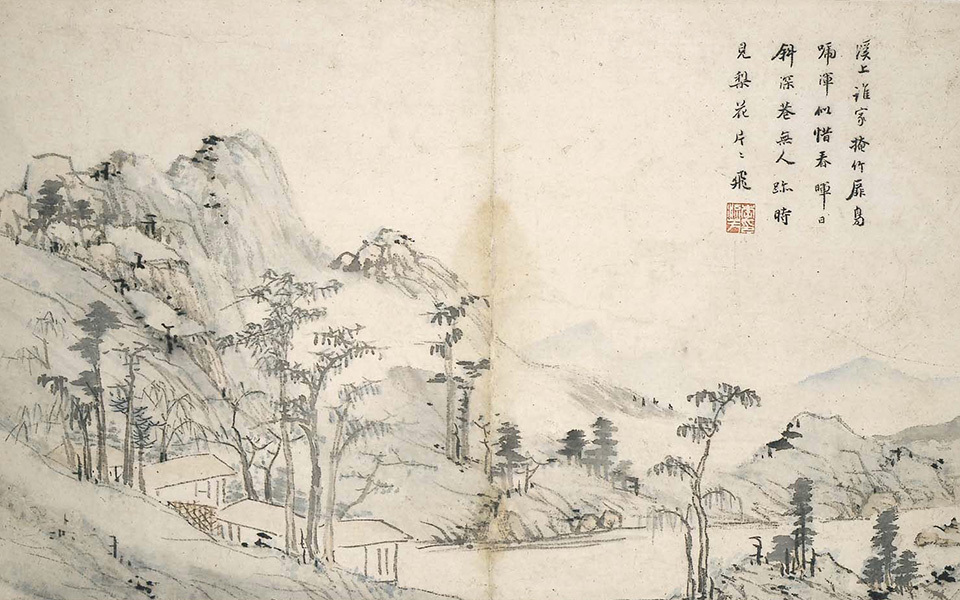 溪上誰家掩竹扉鳥
嗁渾似惜春暉日
斜深巷無人跡時
見棃花片々飛